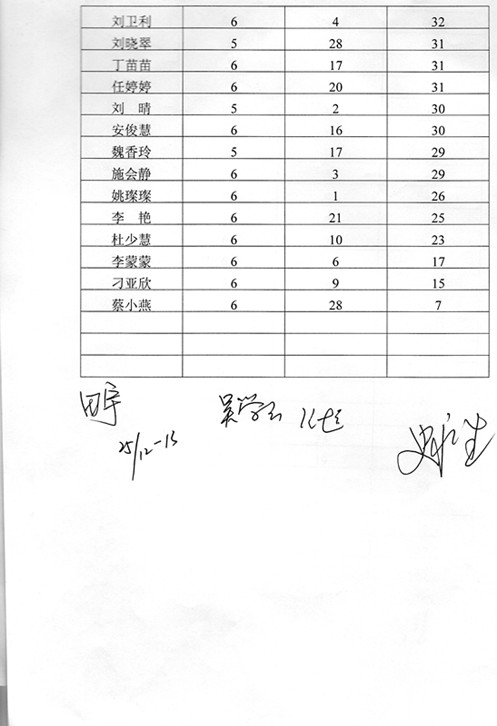 刘卫利 6 4 32
刘晓翠 5 28 31
丁苗苗 6 17 31
任婷婷 6 20 31
刘　晴 5 2 30
安俊慧 6 16 30
魏香玲 5 17 29
施会静 6 3 29
姚璨璨 6 1 26
李　艳 6 21 25
杜少慧 6 10 23
李蒙蒙 6 6 17
刁亚欣 6 9 15
蔡小燕 6 28 7
田宇
25/12-13